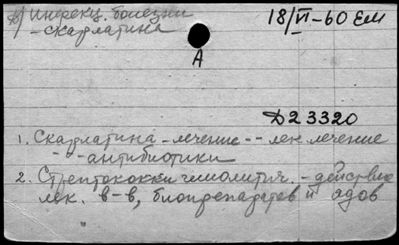 в) инфекц. болезни 18/VI-60 ЕМ
- скарлатина
А
Д23320
1. Скарлатина - лечение -- лек. лечение
" - " - антибиотики
2. Стрептококки гемолитич. - действие
лек. в-в, биопрепаратов и ядов